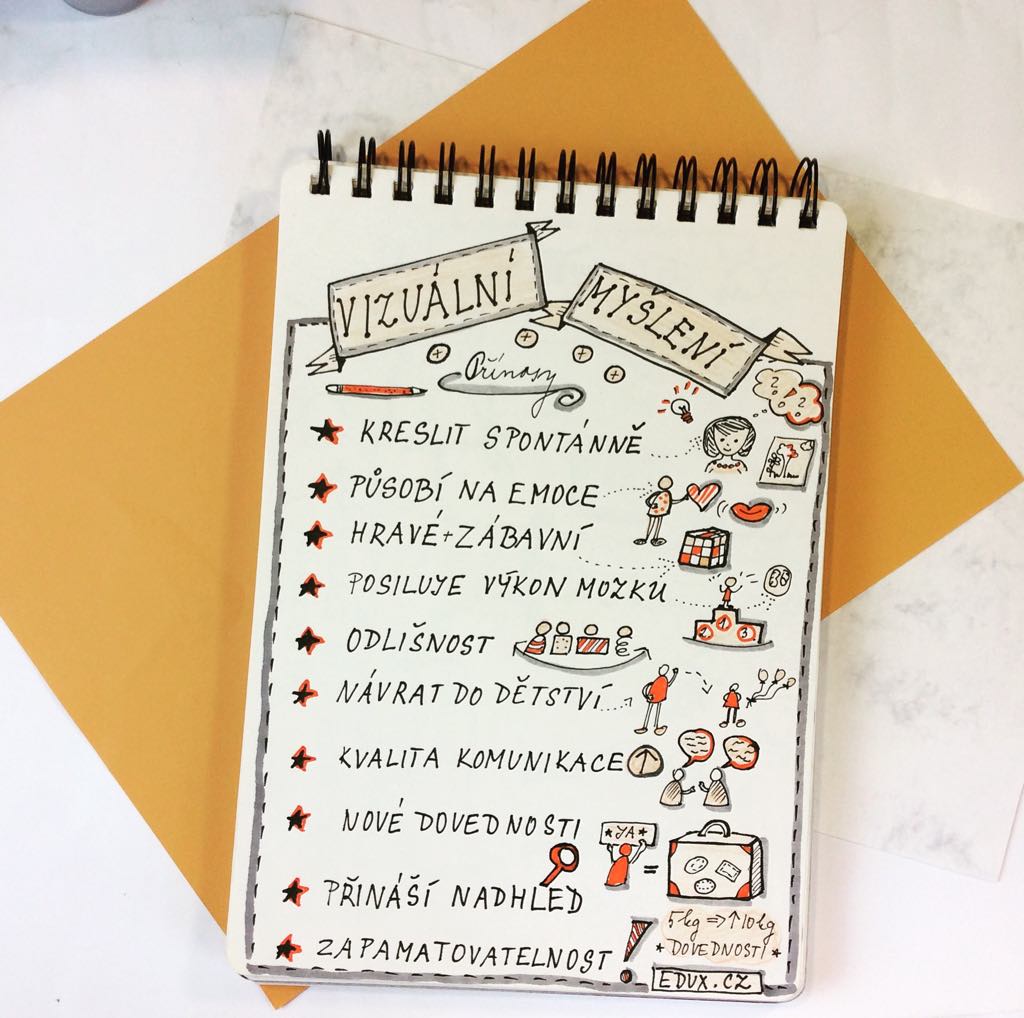 VIZUÁLNÍ
MYŠLENÍ
Přínosy
KRESLIT SPONTÁNNĚ
PŮSOBÍ NA EMOCE
HRAVÉ + ZÁBAVNÍ
POSILUJE VÝKON MOZKU
2. 1. 3.
ODLIŠNOST
NÁVRAT DO DĚTSTVÍ
KVALITA KOMUNIKACE
NOVÉ DOVEDNOSTI
*YA*
=
PŘINÁŠÍ NADHLED
5kg ⇒ ↑10kg
*DOVEDNOSTÍ*
ZAPAMATOVATELNOST!
EDUX.CZ